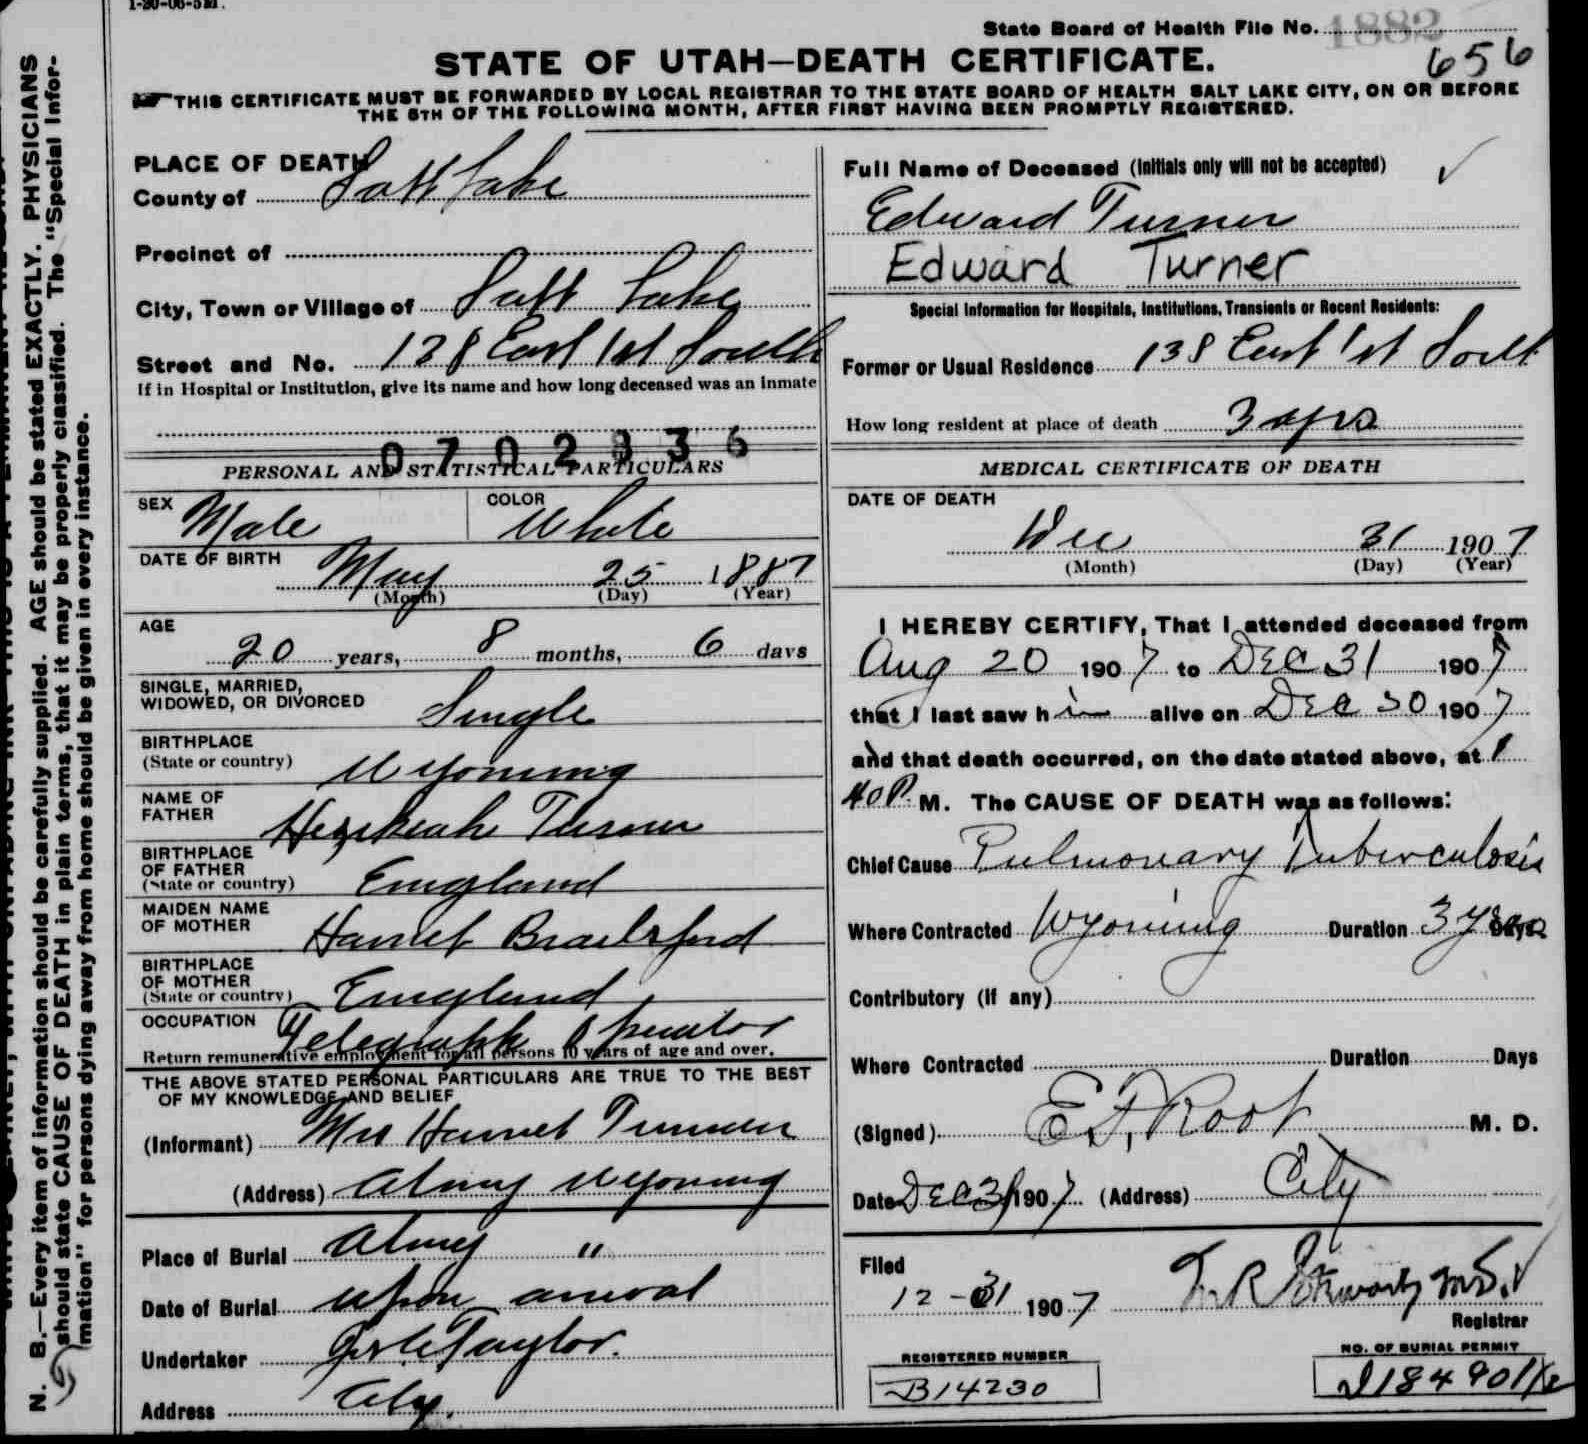 1-20-06-5M.
State Board of Health File No. 1882
656
STATE OF UTAH—DEATH CERTIFICATE.
THIS CERTIFICATE MUST BE FORWARDED BY LOCAL REGISTRAR TO THE STATE BOARD OF HEALTH SALT LAKE CITY, ON OR BEFORE
THE 5TH OF THE FOLLOWING MONTH, AFTER FIRST HAVING BEEN PROMPTLY REGISTERED.
PLACE OF DEATH
County of Salt Lake
Precinct of
City, Town or Village of Salt Lake
Street and No. 138 East 1st South
If in Hospital or Institution, give its name and how long deceased was an inmate
0702836
PERSONAL AND STATISTICAL PARTICULARS
SEX Male COLOR White
DATE OF BIRTH
May 25 1887
(Month) (Day) (Year)
AGE
20 years, 8 months, 6 days
SINGLE, MARRIED,
WIDOWED, OR DIVORCED Single
BIRTHPLACE
(State or country) Wyoming
NAME OF
FATHER Hezekiah Turner
BIRTHPLACE
OF FATHER
(State or country) England
MAIDEN NAME
OF MOTHER Harriet Brailsford
BIRTHPLACE
OF MOTHER
(State or country) England
OCCUPATION Telegraph Operator
Return remunerative employment for all persons 10 years of age and over.
THE ABOVE STATED PERSONAL PARTICULARS ARE TRUE TO THE BEST
OF MY KNOWLEDGE AND BELIEF
(Informant) Mrs Harriet Turner
(Address) Almy Wyoming
Place of Burial Almy "
Date of Burial upon arrival
Undertaker Taylor.
Address City.
Full Name of Deceased (Initials only will not be accepted)
Edward Turner
Edward Turner
Special Information for Hospitals, Institutions, Transients or Recent Residents:
Former or Usual Residence 138 East 1st South
How long resident at place of death 3 yrs
MEDICAL CERTIFICATE OF DEATH
DATE OF DEATH
Dec 31 1907
(Month) (Day) (Year)
I HEREBY CERTIFY, That I attended deceased from
Aug 20 1907 to DEC 31 1907
that I last saw him alive on DEC 30 1907
and that death occurred, on the date stated above, at 1
40 P. M. The CAUSE OF DEATH was as follows:
Chief Cause Pulmonary Tuberculosis
Where Contracted Wyoming Duration 3 years Days
Contributory (if any)
Where Contracted Duration Days
(Signed) E. F. Root M. D.
Date DEC 31 1907 (Address) City
Filed
12-31 1907
Registrar
REGISTERED NUMBER
B14230
NO. OF BURIAL PERMIT
N. B.—Every item of information should be carefully supplied. AGE should be stated EXACTLY. PHYSICIANS
should state CAUSE OF DEATH in plain terms, that it may be properly classified. The "Special Infor-
mation" for persons dying away from home should be given in every instance.